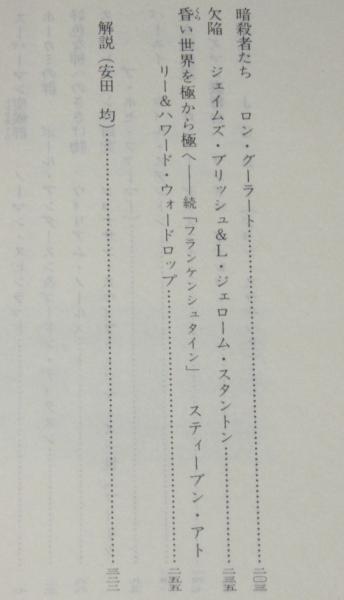 暗殺者たち　ロン・グーラート……………………二〇三
欠陥　ジェイムズ・ブリッシュ&L・ジェローム・スタントン……二三五
昏い世界を極から極へ――続「フランケンシュタイン」　スティーブン・アト
リー&ハワード・ウォードロップ……………………二五五
解説（安田　均）……………………三二二